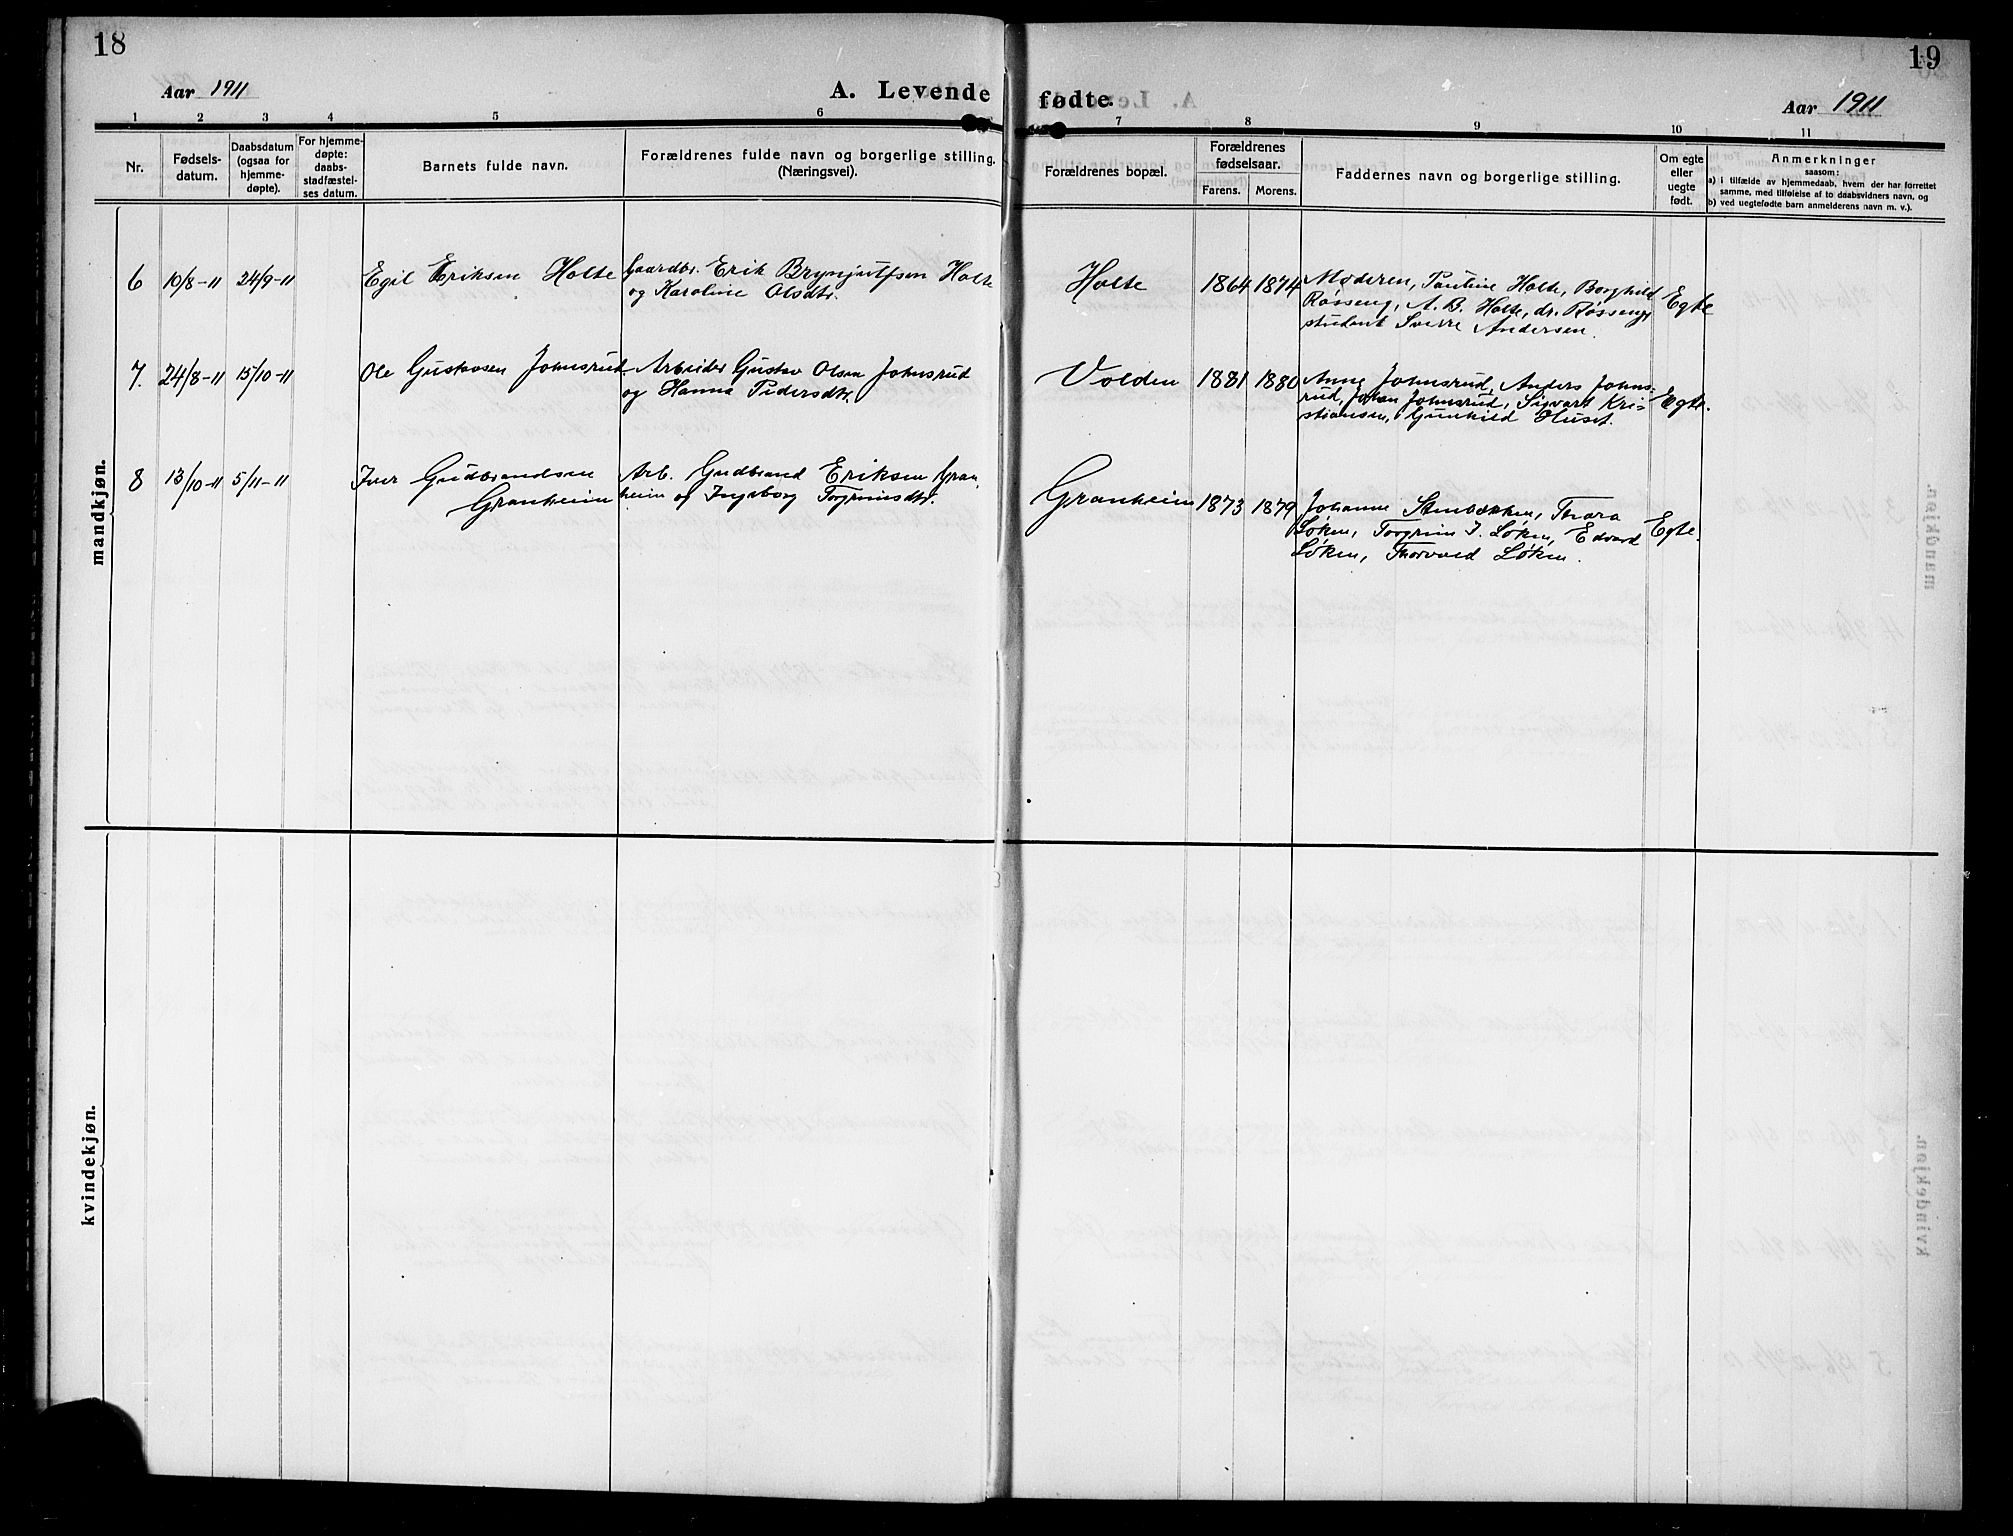 18
19
Aar 1911
A. Levende fødte.
Aar 1911
1 2 3 4 5 6 7 8 9 10 11
Nr.
Fødsels-
datum.
Daabsdatum
(ogsaa for
hjemme-
døpte).
For hjemme-
døpte:
daabs-
stadfæstel-
ses datum.
Barnets fulde navn.
Forældrenes fulde navn og borgerlige stilling.
(Næringsvei).
Forældrenes bopæl.
Forældrenes
fødselsaar.
Farens. Morens.
Faddernes navn og borgerlige stilling.
Om egte
eller
uegte
født.
Anmerkninger
saasom:
a) i tilfælde av hjemmedaab, hvem der har forrettet
samme, med tilføielse af to daabsvidners navn, og
b) ved uegtefødte barn anmelderens navn m. v.).
mandkjøn.
6 10/8-11 24/9-11 Egil Eriksen Holte
Gaardbr. Erik Brynjulfsen Holte
og Karoline Olsdtr.
Holte 1864 1874
Moderen, Pauline Holte, Borghild
Røsseng, A. B. Holte, dr. Røsseng,
student Sverre Andersen.
Egte
7. 24/8-11 15/10-11 Ole Gustavsen Johnsrud
Arbeider Gustav Olsen Johnsrud
og Hanna Pedersdtr.
Volden 1881 1880
Anne Johnsrud, Anders Johns-
rud, Johan Johnsrud, Sigvart Kri-
stiansen, Gunhild Huset.
Egte.
8 13/10-11 5/11-11 Iver Gudbrandsen
Granheim
Arb. Gudbrand Eriksen Gran
heim og Ingeborg Torgrimsdtr.
Granheim 1873 1879
Johanne Stenbækken, Thora
Løken, Torgrim I. Løken, Edvard
Løken, Thorvald Løken.
Egte.
kvindekjøn.